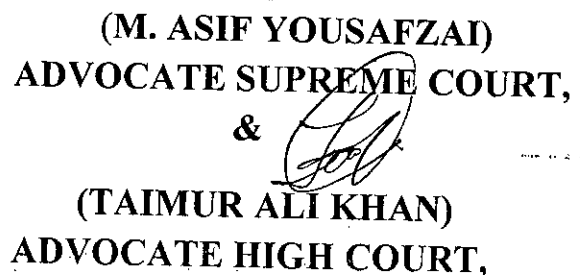 (M. ASIF YOUSAFZAI)
ADVOCATE SUPREME COURT,
&
(TAIMUR ALI KHAN)
ADVOCATE HIGH COURT,